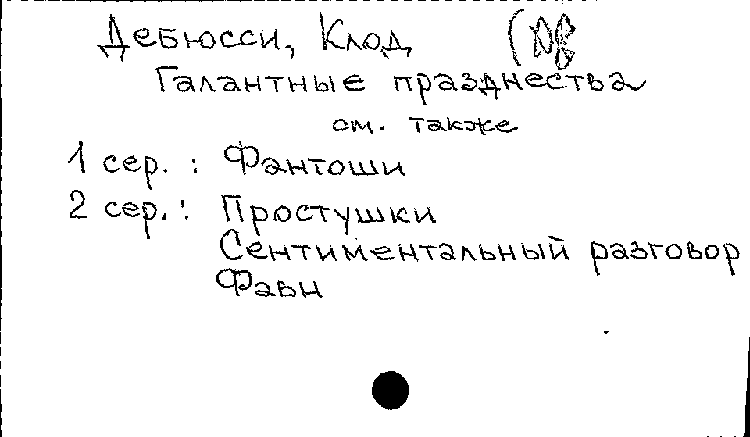 Дебюсси, Клод
Галантные празднества
см. также
1 сер. : Фантоши
2 сер. : Простушки
Сентиментальный разговор
Фавн